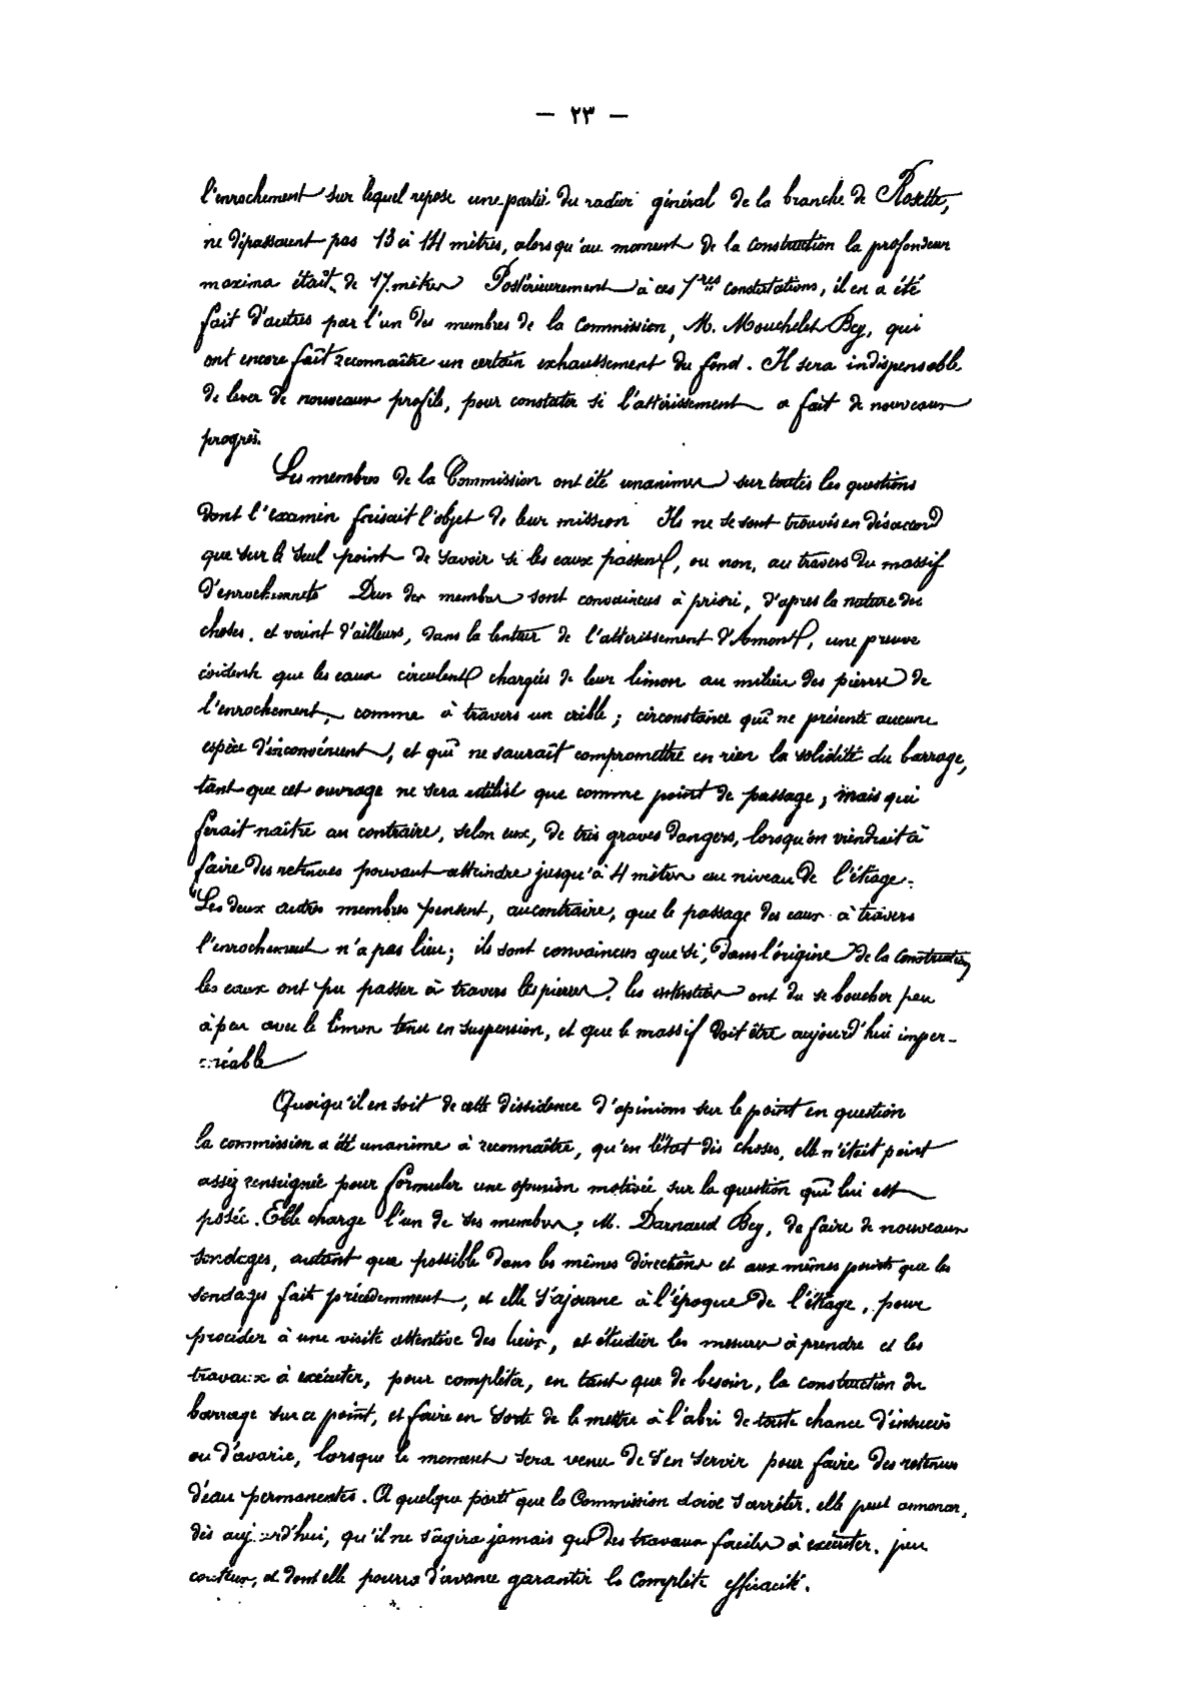 — ٢٣ —
l'enrochement sur lequel repose une partie du radier général de la branche de Rosette,
ne dépassaient pas 13 à 14 mètres, alors qu'au moment de la construction la profondeur
maxima était de 17 mètres Postérieurement à ces 1res constatations, il en a été
fait d'autres par l'un des membres de la Commission, M. Mouchelet Bey, qui
ont encore fait reconnaître un certain exhaussement du fond. Il sera indispensable
de lever de nouveaux profils, pour constater si l'attérissement a fait de nouveaux
progrès.
Les membres de la Commission ont été unanimes sur toutes les questions
dont l'examen faisait l'objet de leur mission Ils ne se sont trouvés en désaccord
que sur le seul point de savoir si les eaux passent, ou non, au travers du massif
d'enrochements Deux des membres sont convaincus à priori, d'après la nature des
choses, et voient d'ailleurs, dans la lenteur de l'attérissement d'Amont, une preuve
évidente que les eaux circulent chargées de leur limon au milieu des pierres de
l'enrochement, comme à travers un crible; circonstance qui ne présente aucune
espèce d'inconvénient, et qui ne saurait compromettre en rien la solidité du barrage,
tant que cet ouvrage ne sera utilisé que comme point de passage; mais qui
ferait naître au contraire, selon eux, de très graves dangers, lorsqu'on viendrait à
faire des retenues pouvant atteindre jusqu'à 4 mètres au niveau de l'étiage.
"Les deux autres membres pensent, au contraire, que le passage des eaux à travers
l'enrochement n'a pas lieu; ils sont convaincus que si, dans l'origine de la construction
les eaux ont pu passer à travers les pierres, les ont du se boucher peu
à peu avec le limon tenu en suspension, et que le massif doit être aujourd'hui imper-
méable
Quoiqu'il en soit de cette dissidence d'opinions sur le point en question
la commission a été unanime à reconnaître, qu'en l'état des choses, elle n'était point
assez renseignée pour formuler une opinion motivée sur la question qui lui est
posée. Elle charge l'un de ses membres, M. Darnaud Bey, de faire de nouveaux
sondages, autant que possible dans les mêmes directions et aux mêmes points que les
sondages faits précédemment, et elle s'ajourne à l'époque de l'étiage, pour
procéder à une visite attentive des lieux, et étudier les mesures à prendre et les
travaux à exécuter, pour compléter, en tant que de besoin, la construction du
barrage sur ce point, et faire en sorte de le mettre à l'abri de toute chance d'insuccès
ou d'avarie, lorsque le moment sera venu de s'en servir pour faire des retenues
d'eau permanentes. A quelque parti que la Commission doive s'arrêter, elle peut annoncer,
dès aujourd'hui, qu'il ne s'agira jamais que des travaux faciles à exécuter, peu
couteux, et dont elle pourra d'avance garantir la complète efficacité.